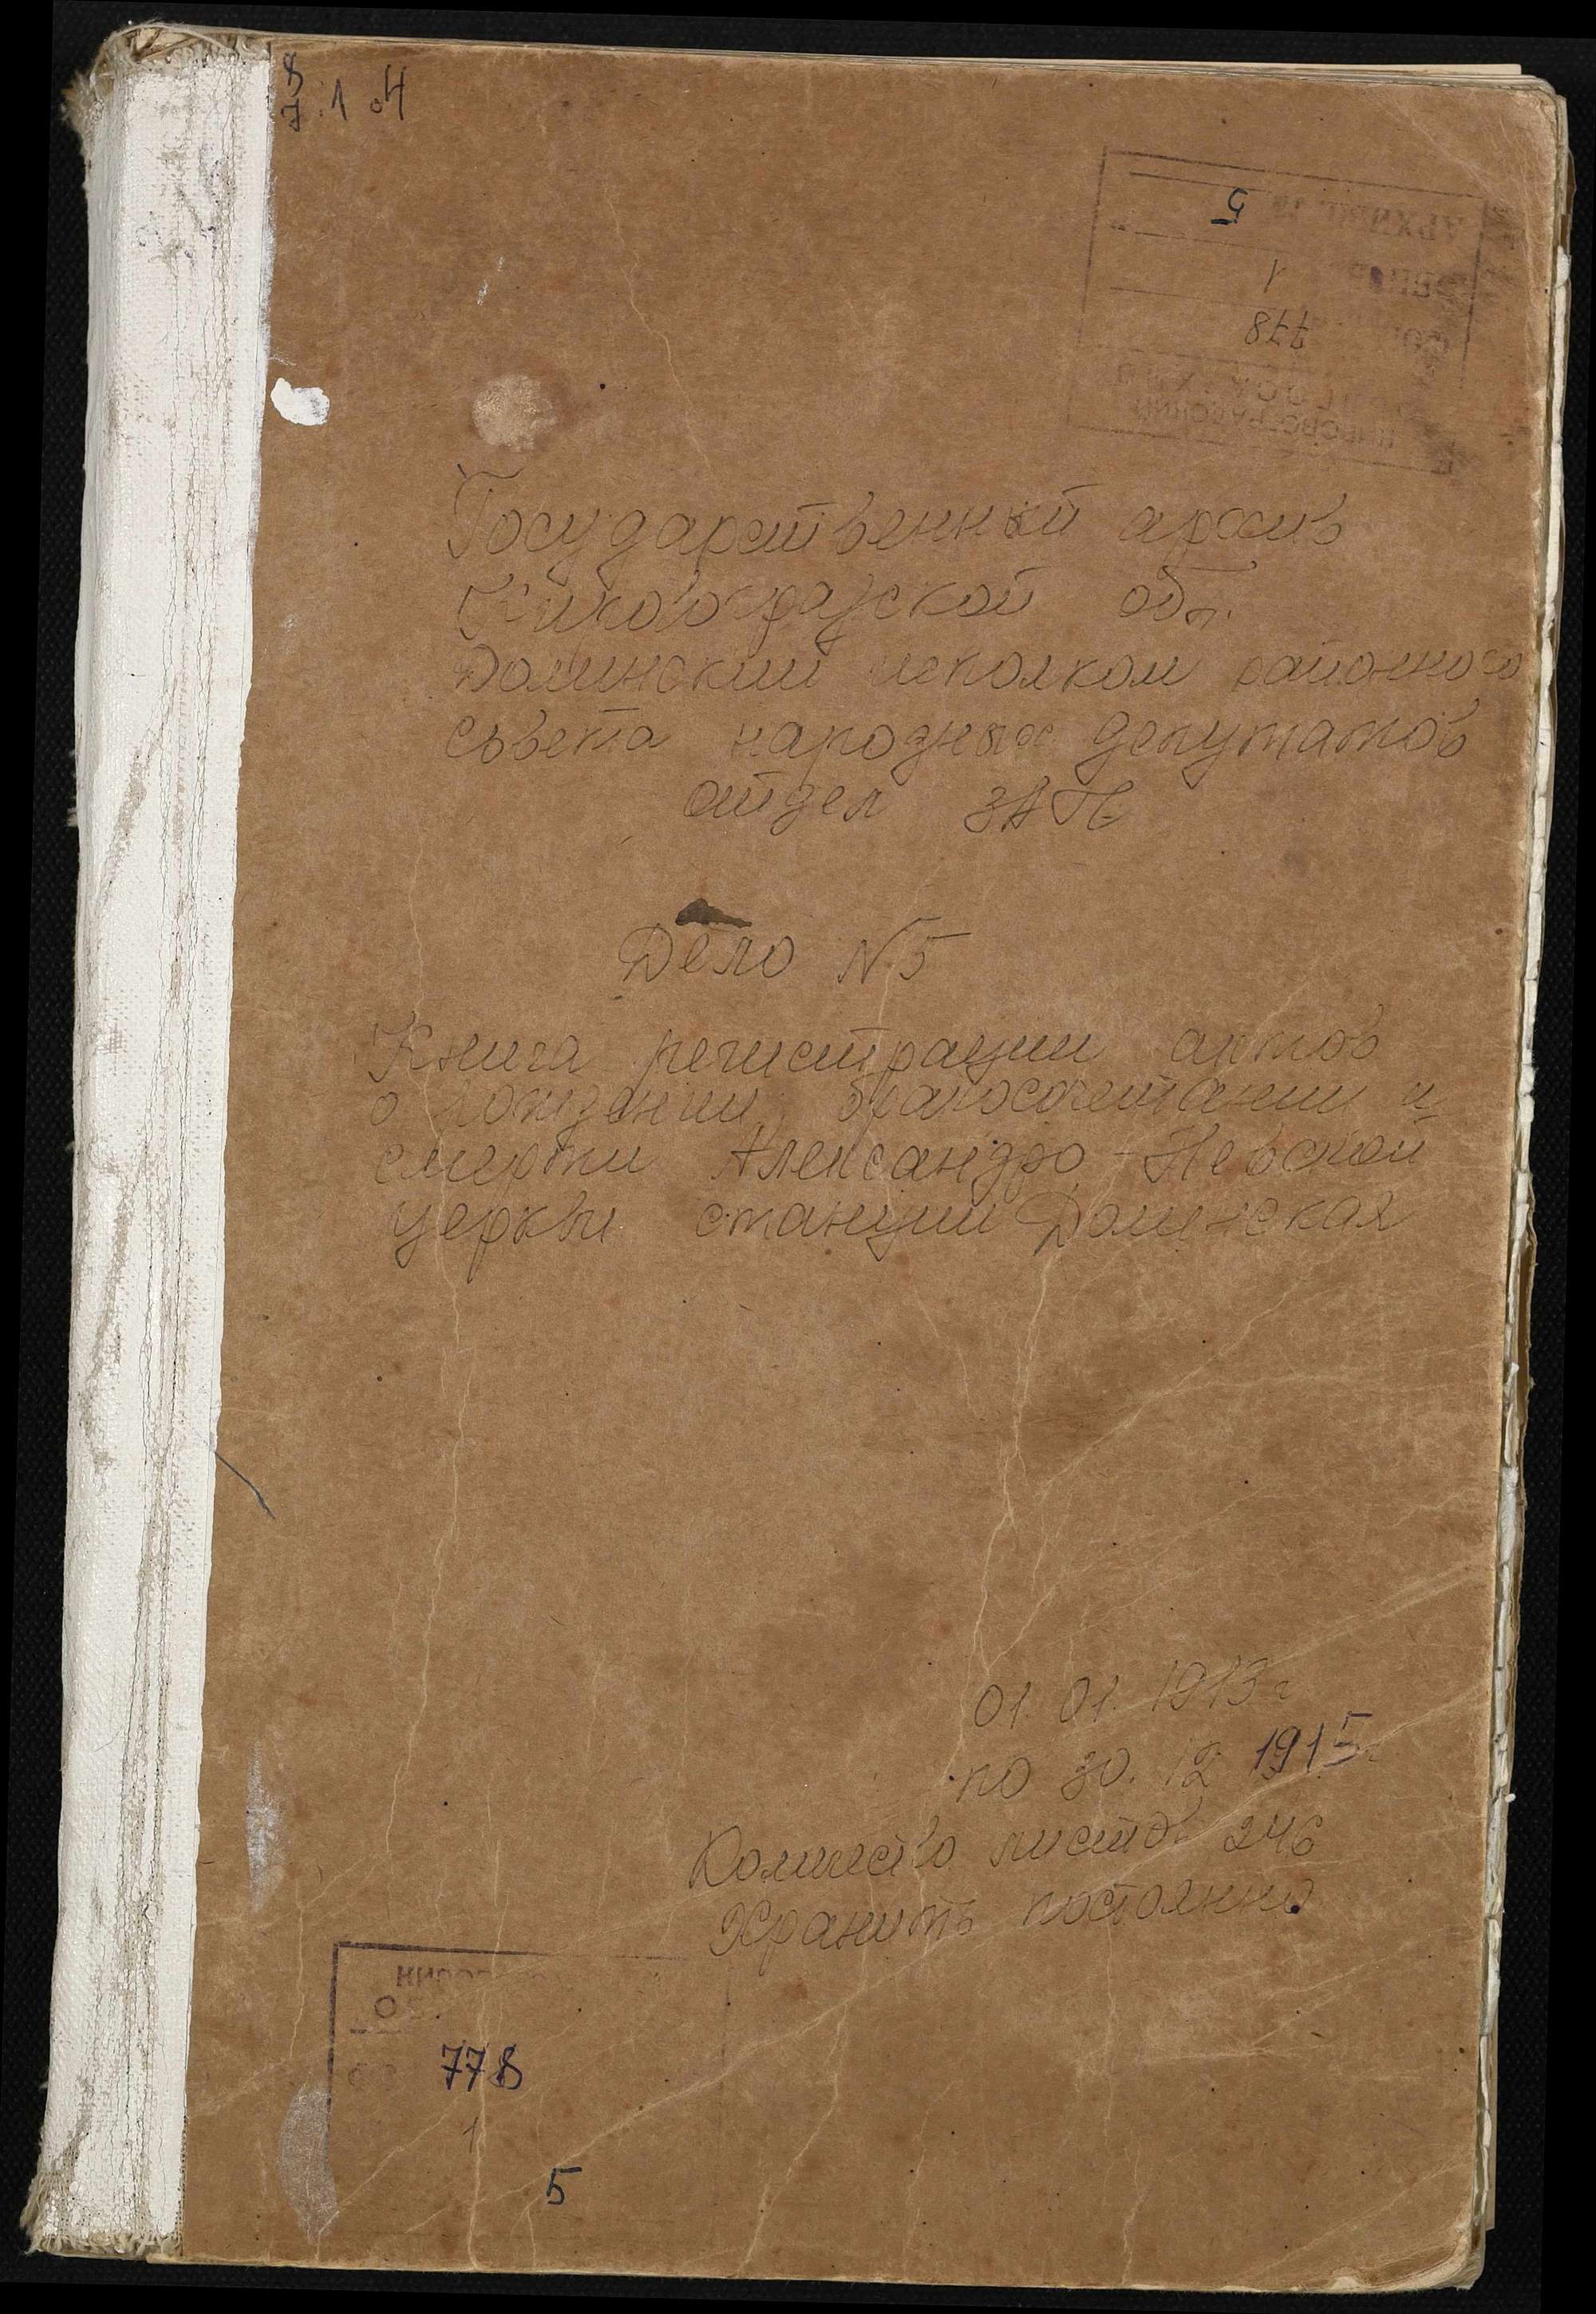 8
7.1.4
5
АРХИВ
1
778
Государственный архив
Кировоградской обл.
Долинский исполком районного
совета народных депутатов
отдел ЗАГС
Дело N 5
Книга регистрации актов
о рождении, бракосочетании и
смерти Александро-Невской
церквы станции Долинская
01.01.1913 г
по 30.12 1915 г
Количество листов 246
Хранить постоянно
778
1
5